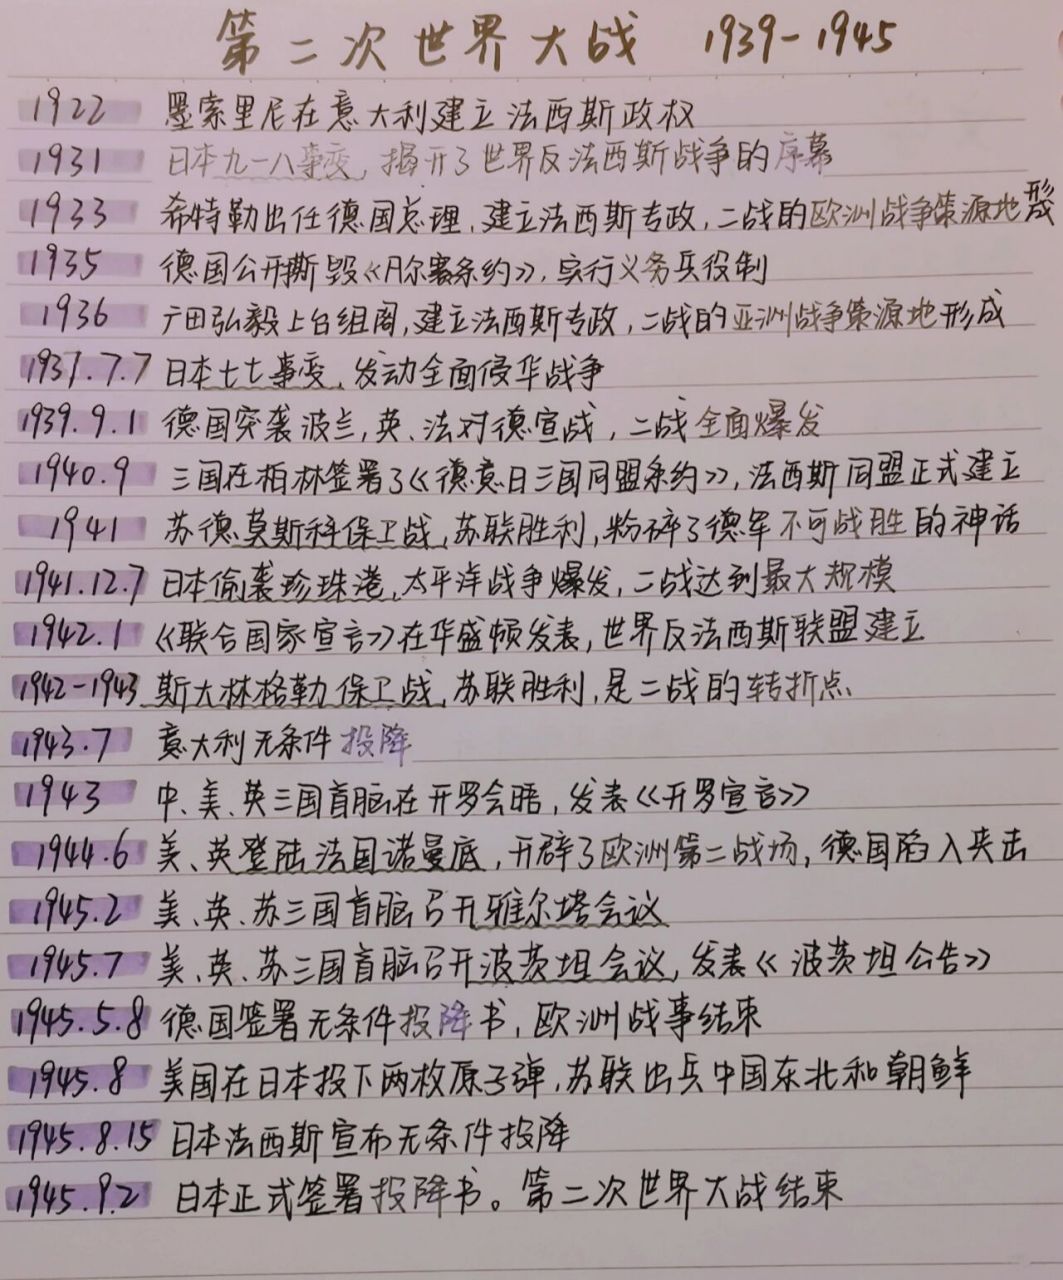 第二次世界大战 1939-1945
1922 墨索里尼在意大利建立法西斯政权
1931 日本九一八事变,揭开了世界反法西斯战争的序幕
1933 希特勒出任德国总理,建立法西斯专政,二战的欧洲战争策源地形成
1935 德国公开撕毁《凡尔赛条约》,实行义务兵役制
1936 广田弘毅上台组阁,建立法西斯专政,二战的亚洲战争策源地形成
1937.7.7 日本七七事变,发动全面侵华战争
1939.9.1 德国突袭波兰,英、法对德宣战,二战全面爆发
1940.9 三国在柏林签署了《德意日三国同盟条约》,法西斯同盟正式建立
1941 苏德莫斯科保卫战,苏联胜利,粉碎了德军不可战胜的神话
1941.12.7 日本偷袭珍珠港,太平洋战争爆发,二战达到最大规模
1942.1 《联合国家宣言》在华盛顿发表,世界反法西斯联盟建立
1942-1943 斯大林格勒保卫战,苏联胜利,是二战的转折点
1943.7 意大利无条件投降
1943 中、美、英三国首脑在开罗会晤,发表《开罗宣言》
1944.6 美、英登陆法国诺曼底,开辟了欧洲第二战场,德国陷入夹击
1945.2 美、英、苏三国首脑召开雅尔塔会议
1945.7 美、英、苏三国首脑召开波茨坦会议,发表《波茨坦公告》
1945.5.8 德国签署无条件投降书,欧洲战事结束
1945.8 美国在日本投下两枚原子弹,苏联出兵中国东北和朝鲜
1945.8.15 日本法西斯宣布无条件投降
1945.9.2 日本正式签署投降书。第二次世界大战结束